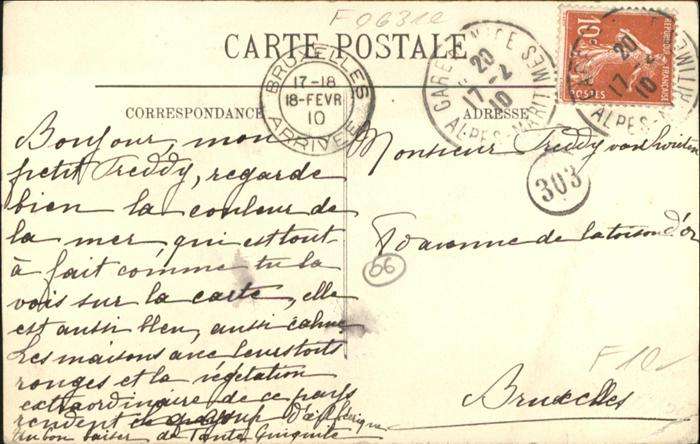 F0631e
CARTE POSTALE
BRUXELLES
17-18
18-FEVR
10
ARRIVÉE
GARE NICE
20
17-2
10
ALPES-MARITIMES
10c
REPUBLIQUE FRANÇAISE
POSTES
20
17-2
10
ALPES-MARITIMES
CORRESPONDANCE
ADRESSE
Bonjour, mon
petit Freddy, regarde
bien la couleur de
la mer, qui est tout-
à fait comme tu la
vois sur la carte, elle
est aussi bleu, aussi calme
Les maisons avec leurs toits
rouges et la végétation
extraordinaire de ce pays
rendent ce d'Afrique
un bon baiser de Tante Guiguite
Monsieur Freddy van
303
avenue de la toison d'or
66
F10
Bruxelles